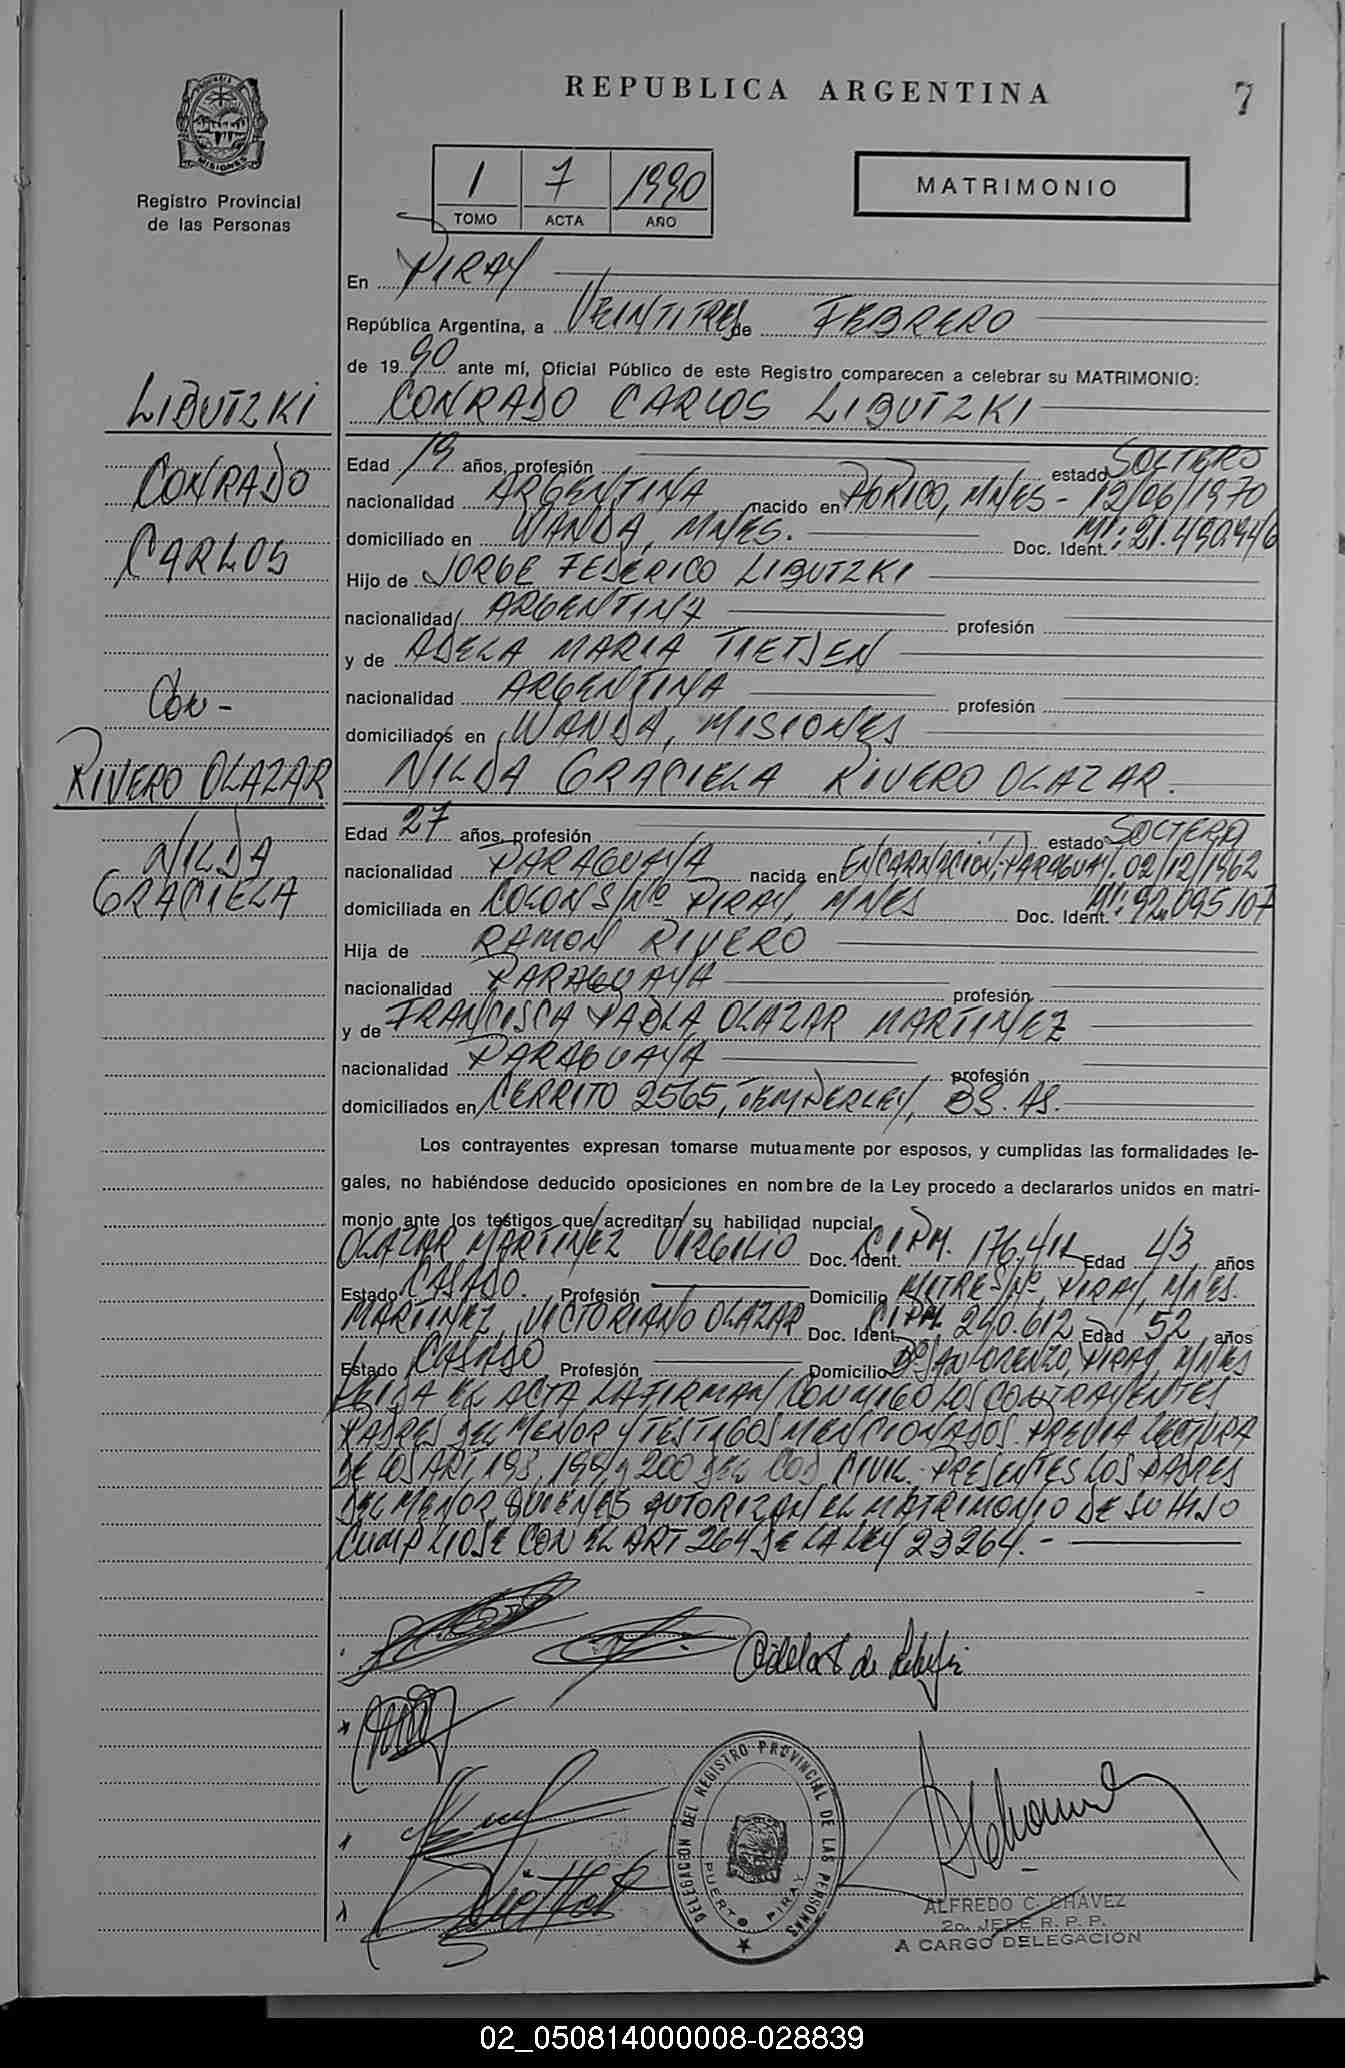 REPUBLICA ARGENTINA
7
MISIONES
Registro Provincial
de las Personas
1 7 1990
TOMO ACTA AÑO
MATRIMONIO
En PIRAY
República Argentina, a VEINTITRES de FEBRERO
de 1990 ante mí, Oficial Público de este Registro comparecen a celebrar su MATRIMONIO:
LIBUTZKI
CONRADO
CARLOS
Con -
RIVERO OLAZAR
NILDA
GRACIELA
CONRADO CARLOS LIBUTZKI
Edad 19 años, profesión estado SOLTERO
nacionalidad ARGENTINA nacido en PTO RICO, MNES - 12/06/1970
domiciliado en WANDA, MNES. Doc. Ident. MI: 21.490.946
Hijo de JORGE FEDERICO LIBUTZKI
nacionalidad ARGENTINA profesión
y de ADELA MARIA TIETJEN
nacionalidad ARGENTINA profesión
domiciliados en WANDA, MISIONES
NILDA GRACIELA RIVERO OLAZAR.
Edad 27 años, profesión estado SOLTERA
nacionalidad PARAGUAYA nacida en ENCARNACION, PARAGUAY. 02/12/1962
domiciliada en COLON S/Nº PIRAY, MNES Doc. Ident. MI: 92.095.107
Hija de RAMON RIVERO
nacionalidad PARAGUAYA profesión
y de FRANCISCA PABLA OLAZAR MARTINEZ
nacionalidad PARAGUAYA profesión
domiciliados en CERRITO 2565, TEMPERLEY, BS. AS.
Los contrayentes expresan tomarse mutuamente por esposos, y cumplidas las formalidades le-
gales, no habiéndose deducido oposiciones en nombre de la Ley procedo a declararlos unidos en matri-
monio ante los testigos que acreditan su habilidad nupcial
OLAZAR MARTINEZ VIRGILIO Doc. Ident. CIPM. Edad 43 años
Estado CASADO. Profesión Domicilio MITRE S/Nº, PIRAY, MNES.
MARTINEZ, VICTORIANO OLAZAR Doc. Ident. CIPM. 240.612 Edad 52 años
Estado CASADO Profesión Domicilio Bº SAN LORENZO, PIRAY, MNES
LEIDA EL ACTA LA FIRMAN CONMIGO LOS CONTRAYENTES
PADRES DEL MENOR Y TESTIGOS MENCIONADOS. PREVIA LECTURA
DE LOS ART. 198, 199 y 200 DEL COD CIVIL. PRESENTES LOS PADRES
DEL MENOR QUIENES AUTORIZAN EL MATRIMONIO DE SU HIJO
CUMPLIOSE CON EL ART 264 DE LA LEY 23264.-
DELEGACION DEL REGISTRO PROVINCIAL DE LAS PERSONAS
PUERTO PIRAY
ALFREDO C. CHAVEZ
2o. JEFE R. P. P.
A CARGO DELEGACION
02_050814000008-028839